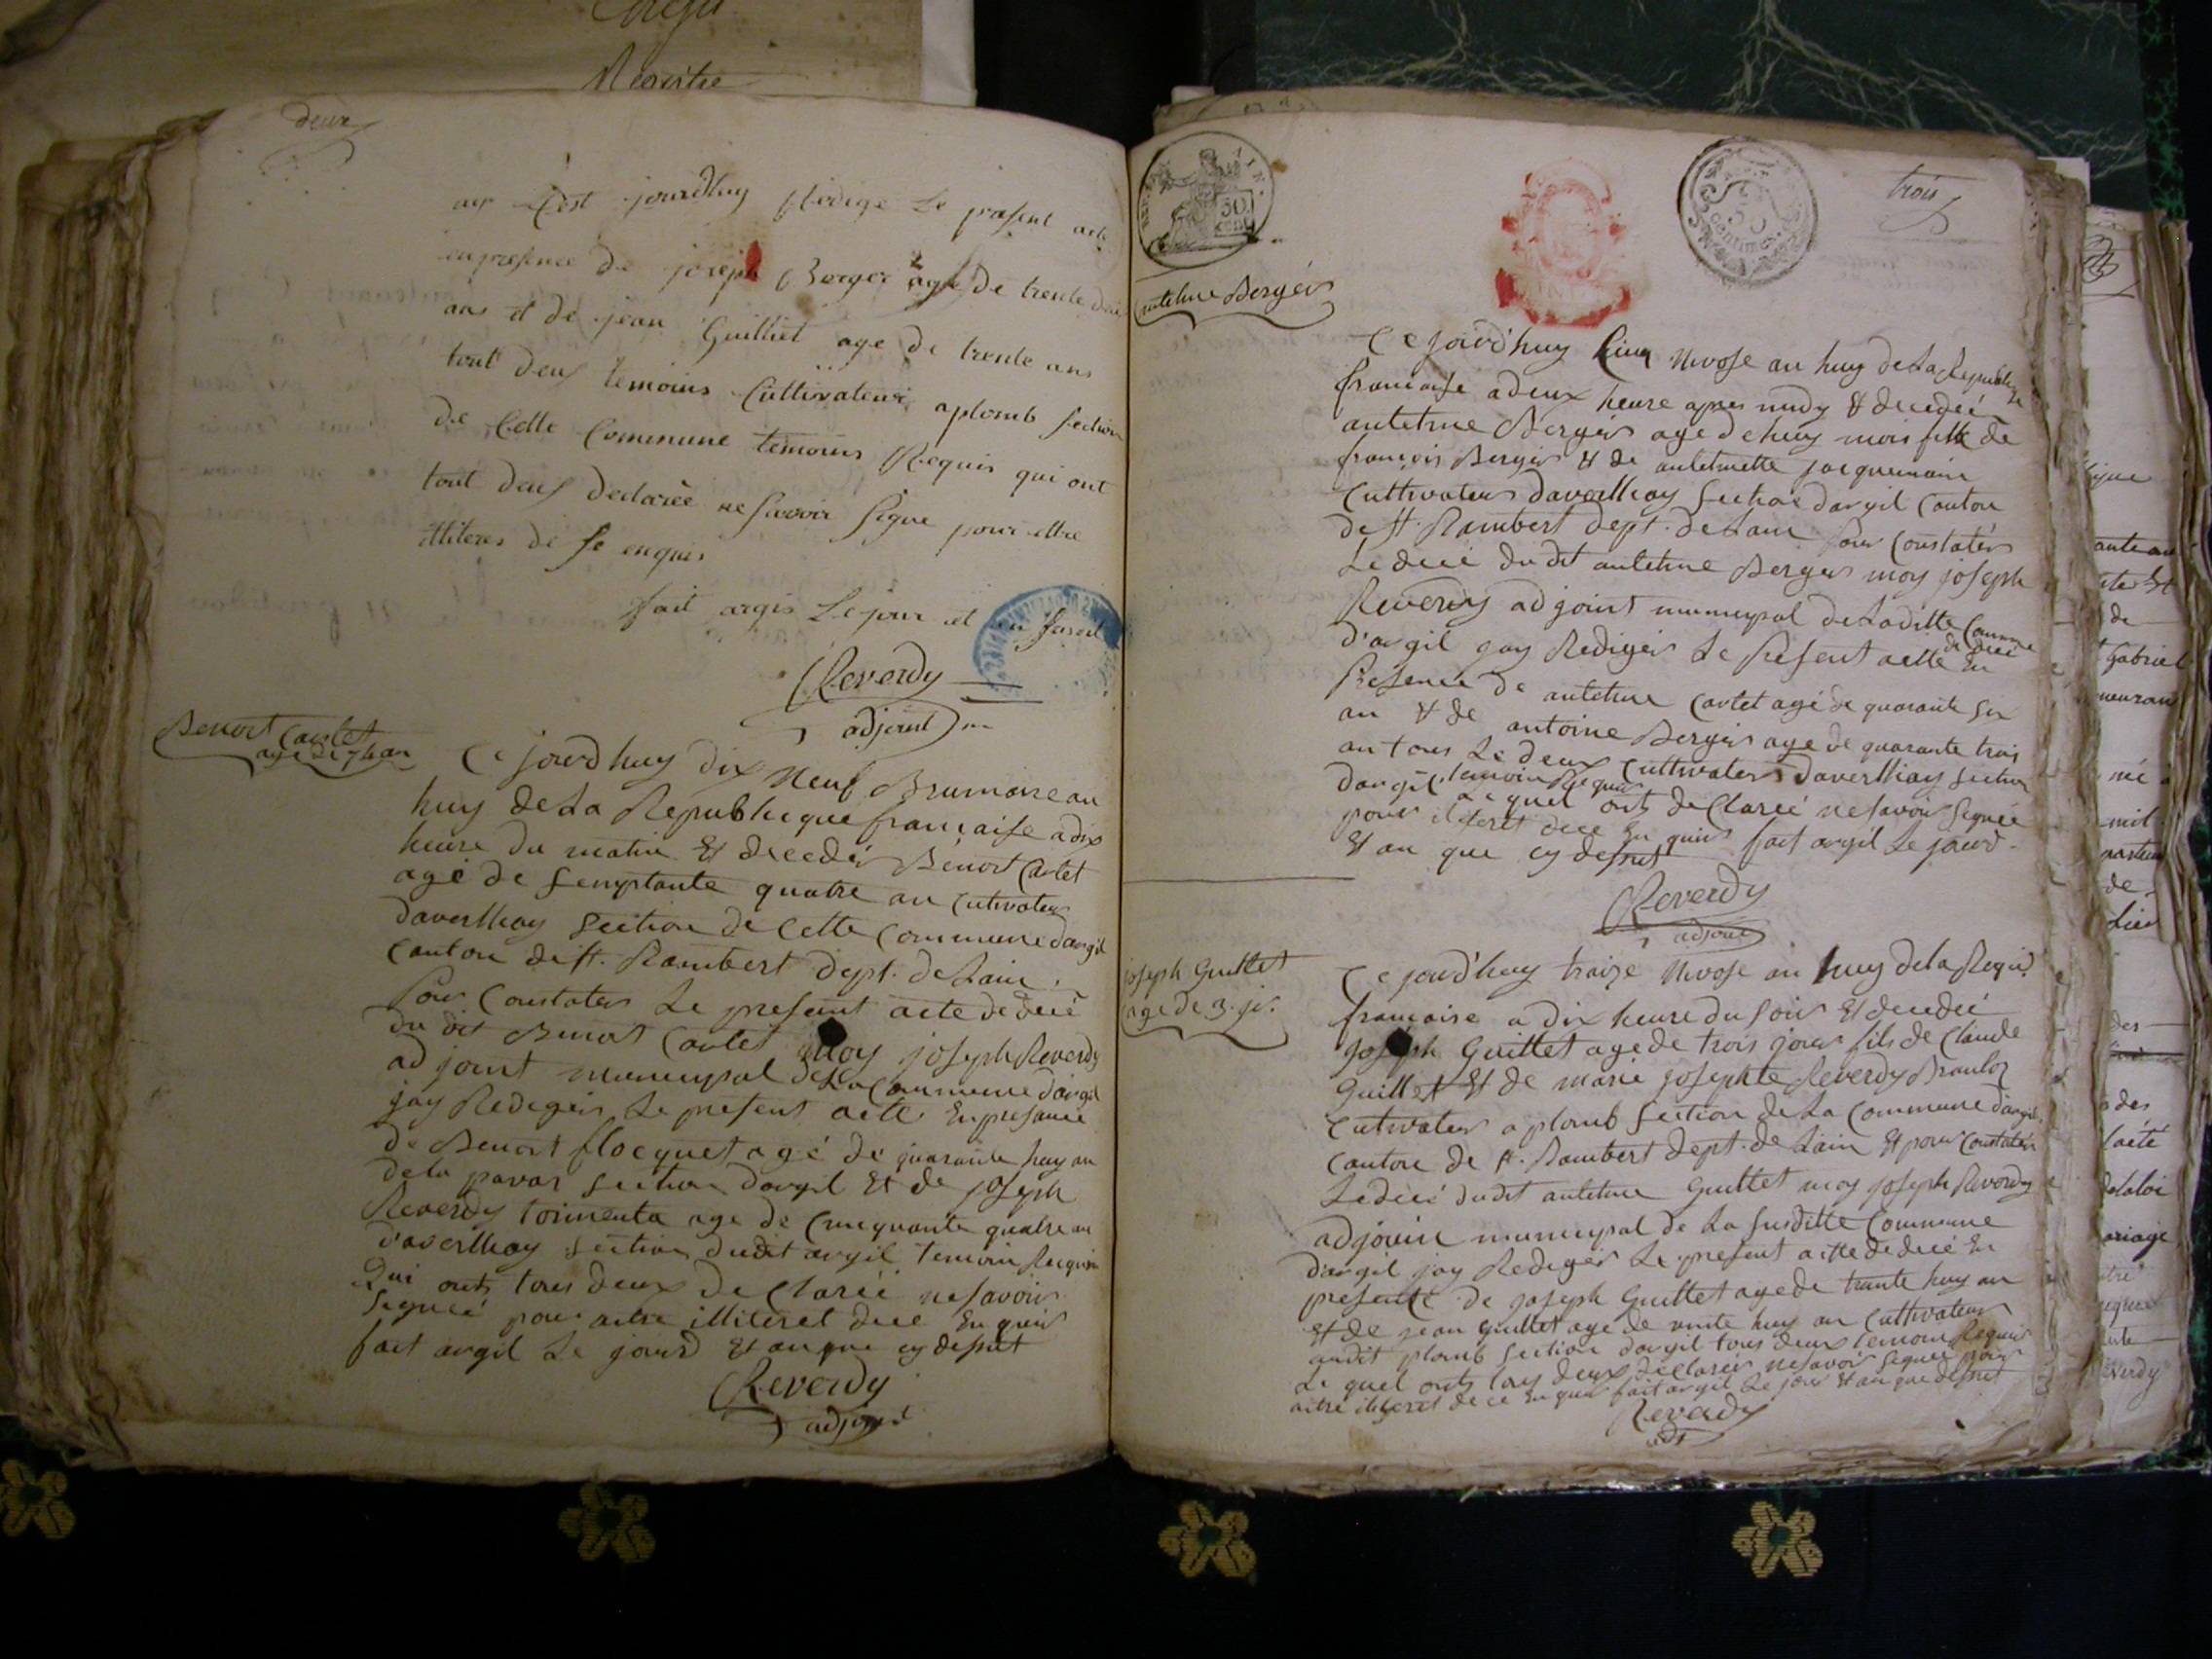 Registre
deux
cest jourdhuy Redige le present acte
en presence de joseph Berger age de trente deux
ans et de jean Guilliet age de trente ans
tout deux temoins Cultivateur aplomb section
de Cette Commune temoins Requis qui ont
tout deux declarée ne savoir signe pour etre
illiteres de se enquis
fait argis Le jour et an
Reverdy
adjoint
Benoit Cartet
age de 74 an
Ce jourdhuy dix neuf Brumaire an
huy de La Republique francaise a dix
heure du matin Et decedér Benoit Cartet
agé de semptante quatre an Cutivateur
daverlhay section de Cette Commune dargil
Canton de st. Rambert dept. de Lain.
Pour Constater Le present acte de decé
du dit Benoit Cartet moy joseph Reverdy
adjoint municypal de La Commune dargil
jay Rediger Le present acte En presance
de Benoit flocquet agé de quarante huy an
de la pavas section dargil Et de joseph
Reverdy tormenta age de Cincquante quatre an
daverlhay section dudit argil temoin Requis
Qui onts tous deux de Clarée ne savoir
Signeé pour aitre illiteret dece Enquis
fait argil Le jourd Et an que cy desut
Reverdy
adjoint
30
cent
centimes
trois
antelme Berger
Ce jourd'huy Cinq Nivose an huy de La Republique
francaise a deux heure apres midy Et decedeé
antelme Berger age de huy mois fils de
francois Berger Et de antelmette jacquemain
Cultivateur daverlhay section dargil Canton
de st. Rambert dept. de Lain pour Constater
Le decé du dit antelme Berger moy joseph
Reverdy adjoint municypal de La ditte Commune
d'argil jay Rediger Le Present acte de decé En
Presence de antelme Cartet agé de quarante six
an Et de antoine Berger age de quarante trois
an tous Le deux Cultivateur daverlhay section
dargil temoin Requis
Le quel onts de Clareé ne savoir Signeé
pour iliteret dece En quis fait argil Le jourd
Et an que cy desut
Reverdy
adjoint
joseph Guillet
age de 3. jr.
Ce jourd'huy traize Nivose an huy de la Repu.
francaise a dix heure du soir Et decedeé
joseph Guillet age de trois jour fils de Claude
Guillet Et de marie josephte Reverdy
Cutivateur a plomb section de La Commune dargil
Canton de st. Rambert dept. de Lain Et pour Constater
Le decé dudit antelme Guillet moy joseph Reverdy
adjoint municypal de La susditte Commune
dargil jay Rediger Le present acte de decé En
presente de joseph Guillet age de trante huy an
Et de jean guillet age de vinte huy an Cultivateur
audit plomb section dargil tous deux temoin Requis
Le quel onts tous deux de Clareé ne savoir Signeé pour
aitre iliteret de ce En quis fait argil Le jour Et an que desut
Reverdy
adjt
Gabriel
mil
de
mariage
Reverdy